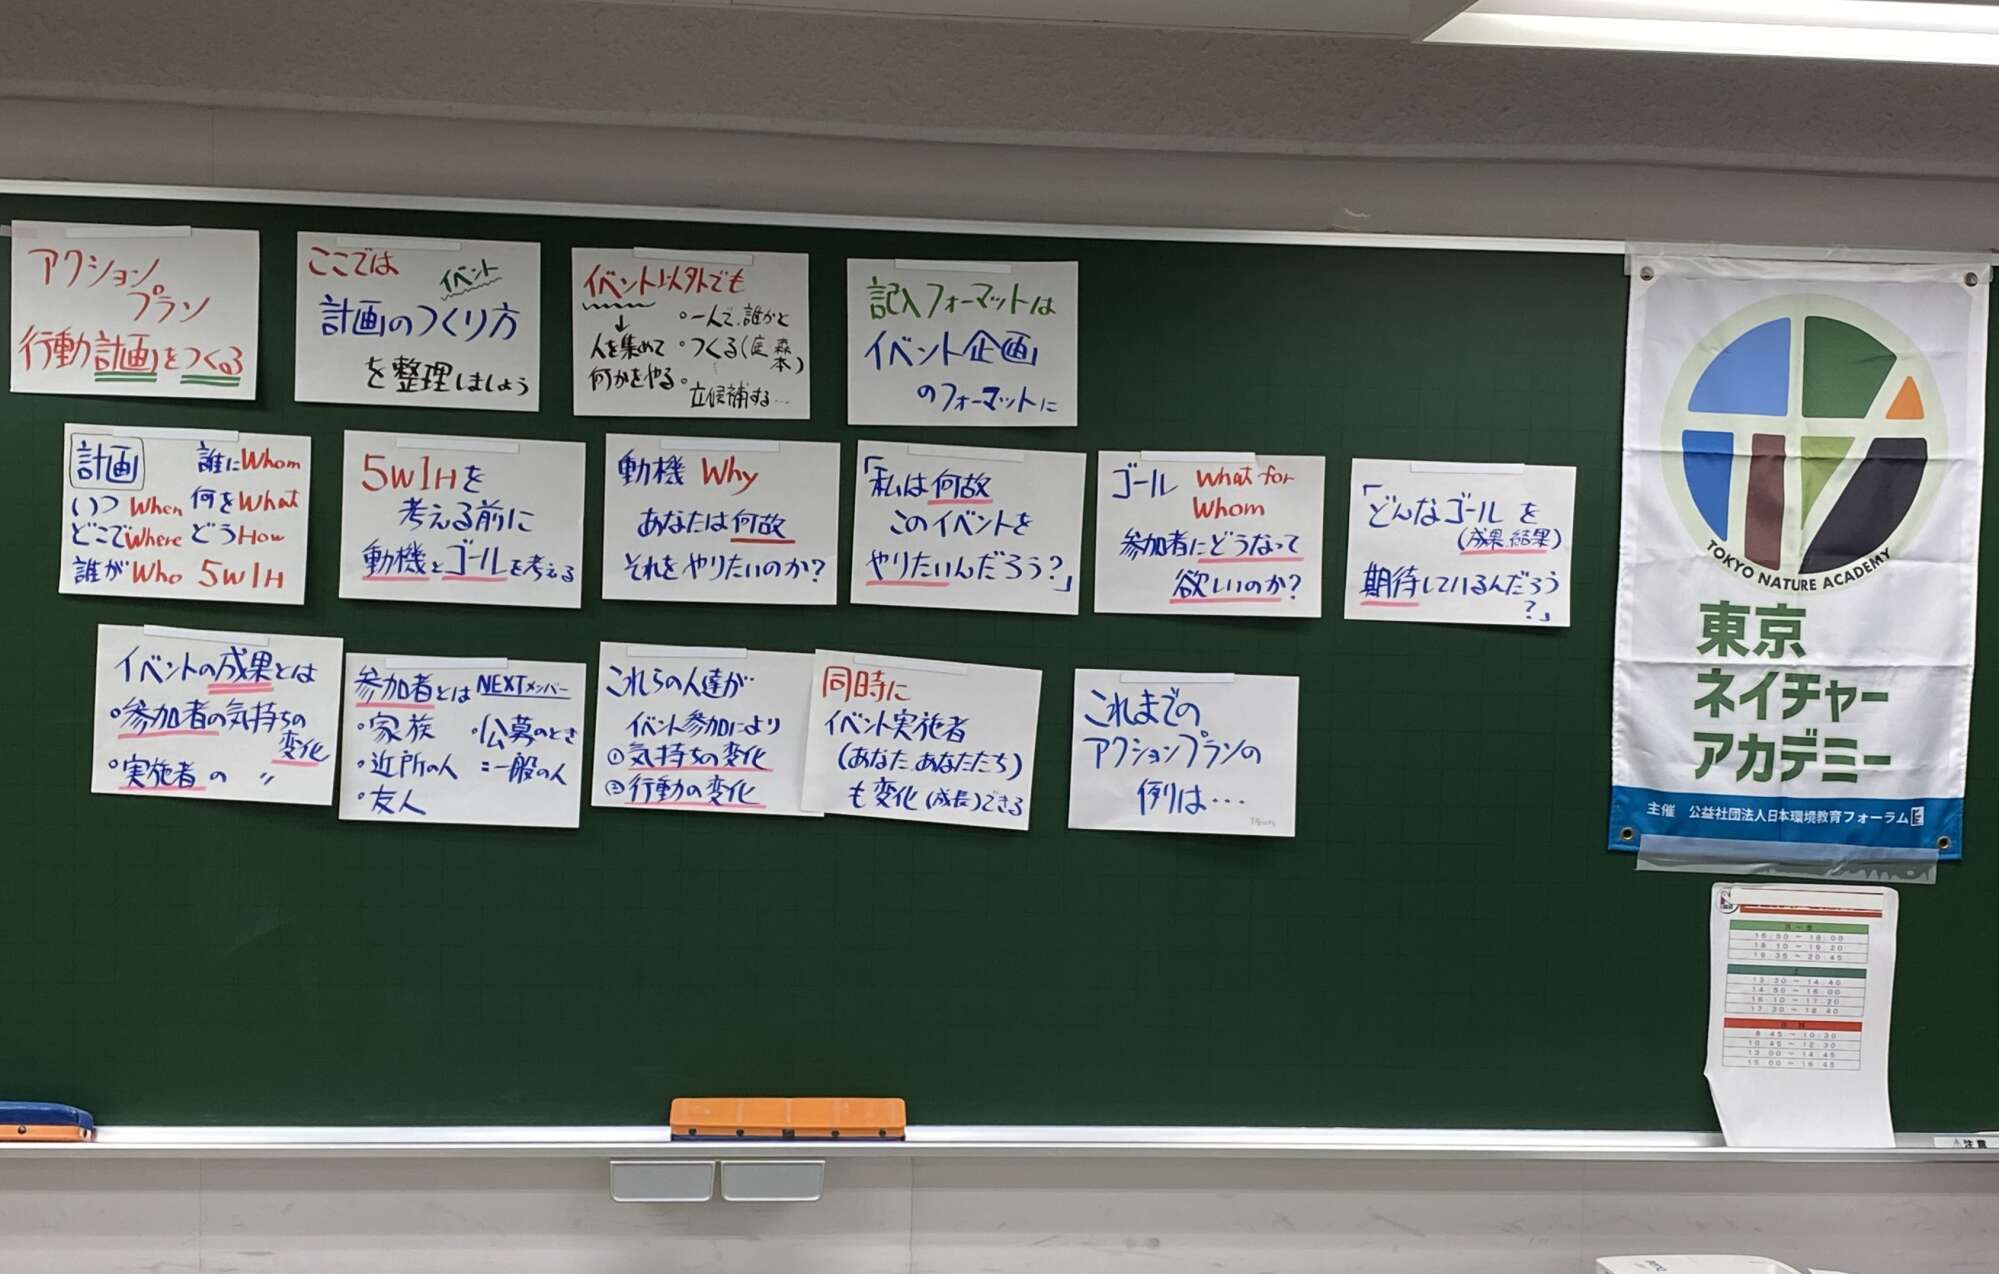 アクション
プラン
行動計画をつくる
ここでは
イベント
計画のつくり方
を整理しましょう
イベント以外でも
↓
人を集めて
何かをやる
・一人で、誰かと
・つくる(庭 森 本)
・立候補する…
記入フォーマットは
イベント企画
のフォーマットに
計画
誰にWhom
いつ When 何をWhat
どこでWhere どうHow
誰がWho 5W1H
5W1Hを
考える前に
動機とゴールを考える
動機 Why
あなたは何故
それをやりたいのか?
「私は何故
このイベントを
やりたいんだろう?」
ゴール What for
Whom
参加者にどうなって
欲しいのか?
「どんなゴールを
(成果、結果)
期待しているんだろう
?」
イベントの成果とは
・参加者の気持ちの
変化
・実施者の 〃
参加者とは NEXTメンバー
・家族
・近所の人
・友人
・公募のとき
=一般の人
これらの人達が
イベント参加により
①気持ちの変化
②行動の変化
同時に
イベント実施者
(あなた、あなたたち)
も変化(成長)できる
これまでの
アクションプランの
例は…
TOKYO NATURE ACADEMY
東京
ネイチャー
アカデミー
主催 公益社団法人日本環境教育フォーラム
16:50～18:00
18:10～19:20
19:35～20:45
土
13:30～14:40
14:50～16:00
16:10～17:20
17:30～18:40
8:45～10:30
10:45～12:30
13:00～14:45
15:00～16:45
注意